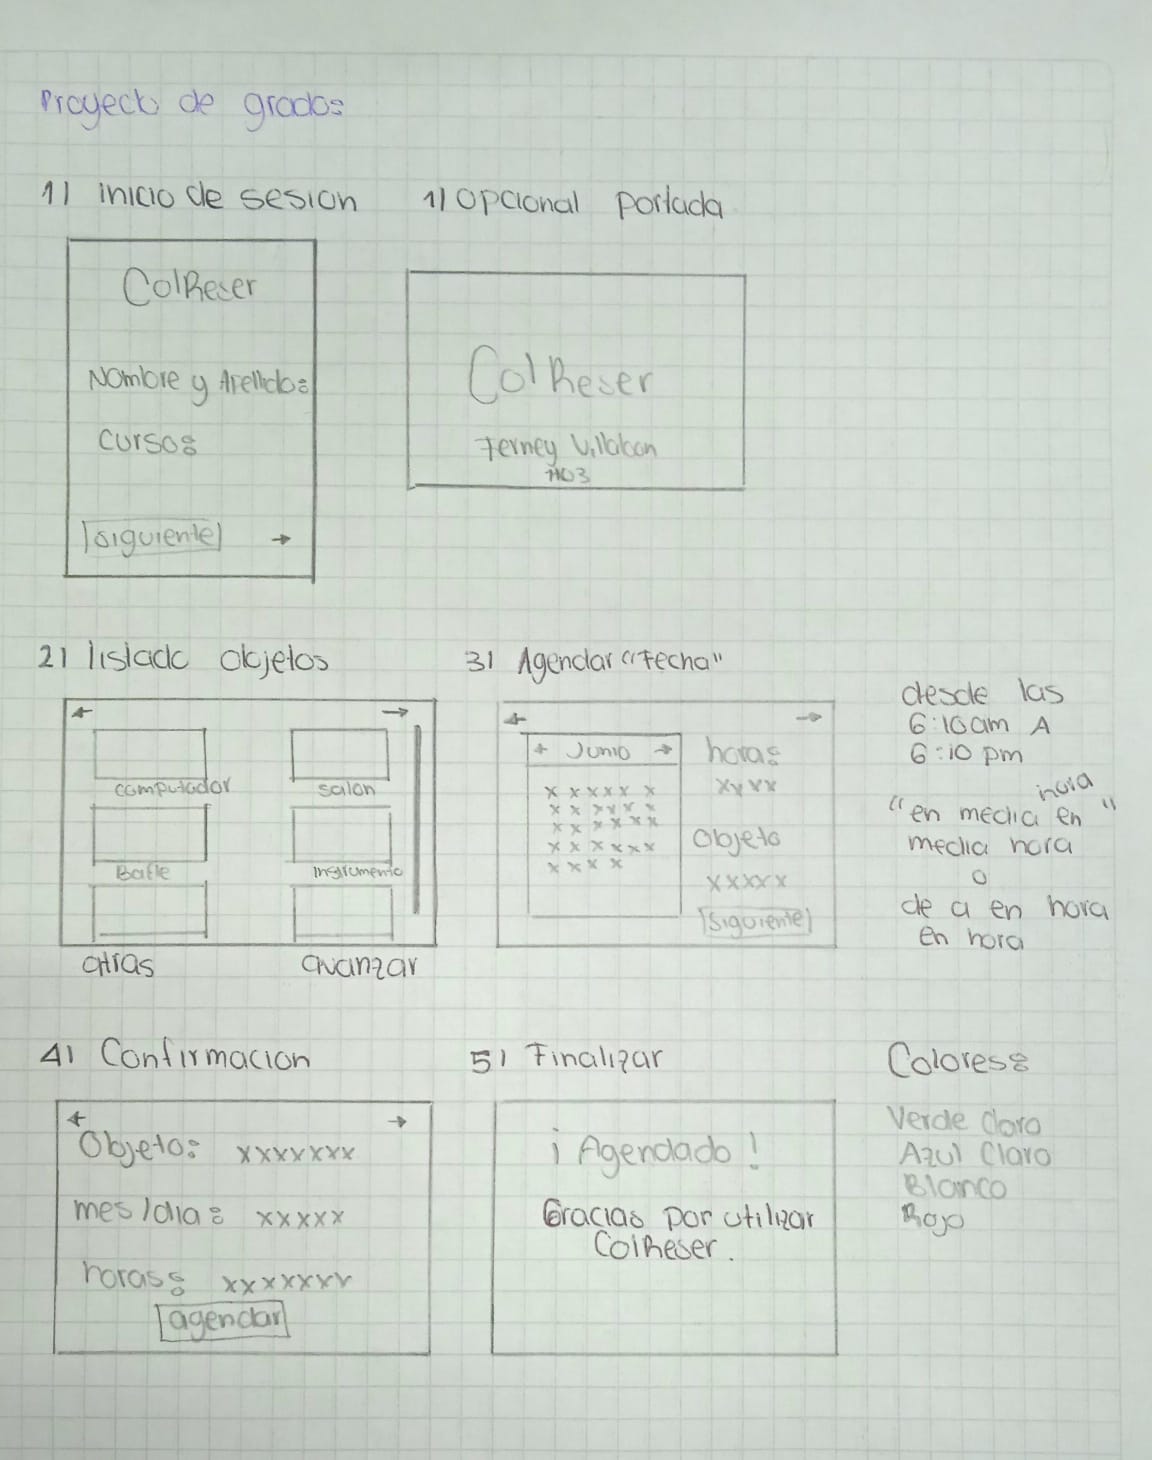 Proyecto de grado:
1) inicio de sesion
1) opcional portada
ColReser
Nombre y Apellido:
curso:
siguiente →
ColReser
Ferney Villalbon
1103
2) listado objetos
← →
computador salon
Bafle Instrumento
atras avanzar
3) Agendar "Fecha"
← →
← Junio →
x x x x x x
x x x x x x
x x x x x x
x x x x x x
x x x x
hora:
xxxx
Objeto
xxxxx
siguiente
desde las
6:10am A
6:10 pm
"en media hora en"
media hora
o
de a en hora
en hora
4) Confirmacion
← →
Objeto: xxxxxxx
mes/dia: xxxxx
horas: xxxxxxx
agendar
5) Finalizar
¡Agendado!
Gracias por utilizar
ColReser.
Colores:
Verde Claro
Azul Claro
Blanco
Rojo